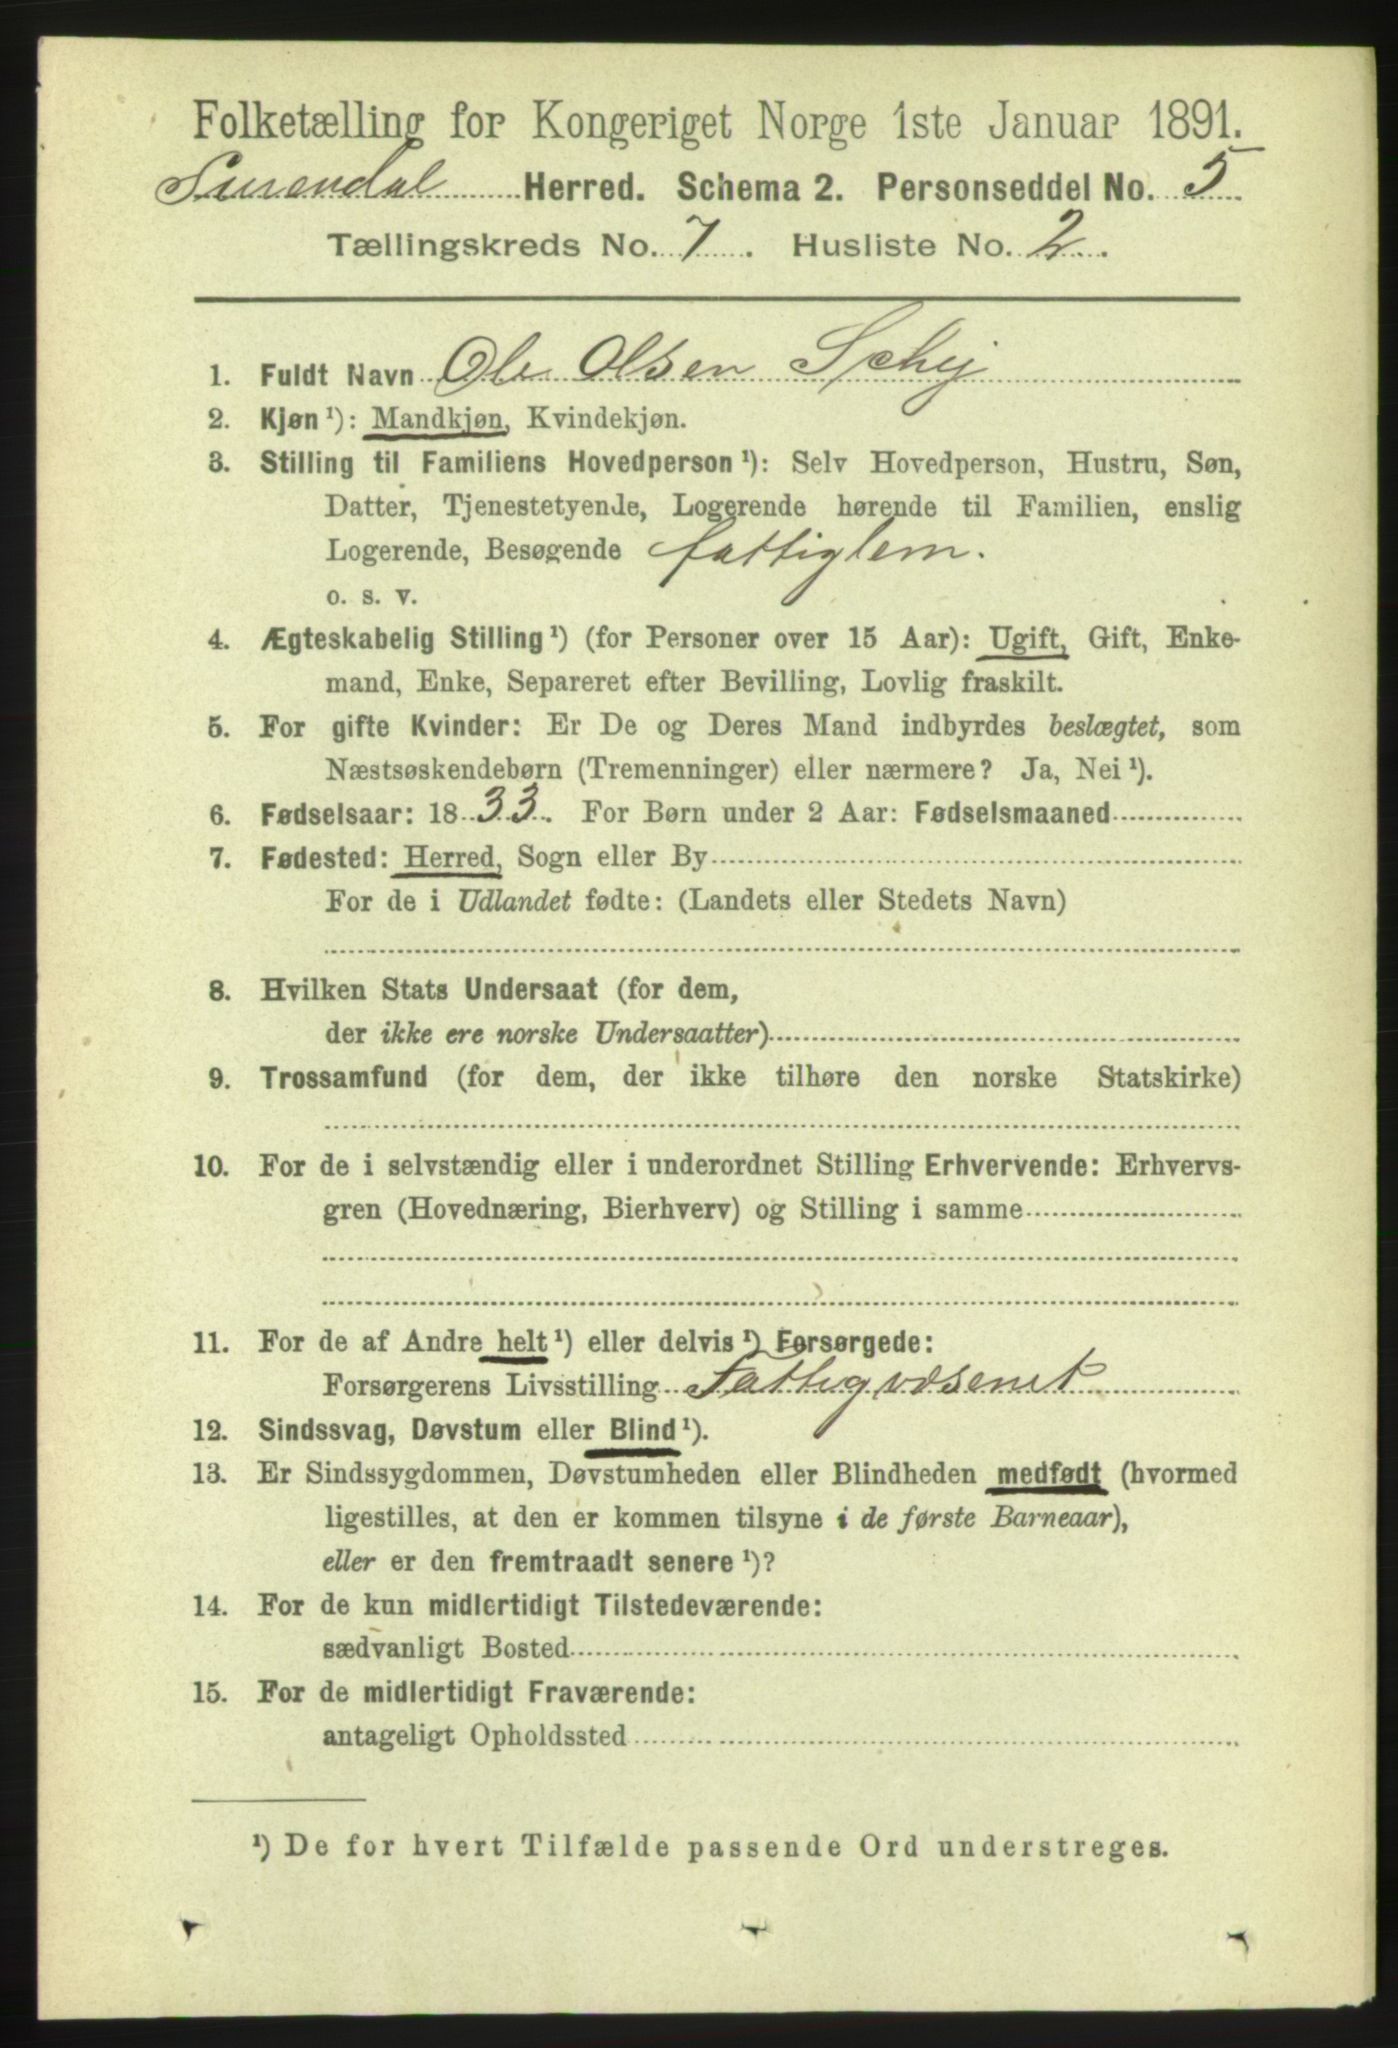 Folketælling for Kongeriget Norge 1ste Januar 1891.
Surendal Herred. Schema 2. Personseddel No. 5
Tællingskreds No. 7. Husliste No. 2.
1. Fuldt Navn Ole Olsen Schej
2. Kjøn ¹): Mandkjøn, Kvindekjøn.
3. Stilling til Familiens Hovedperson ¹): Selv Hovedperson, Hustru, Søn,
Datter, Tjenestetyende, Logerende hørende til Familien, enslig
Logerende, Besøgende fattiglem.
o. s. v.
4. Ægteskabelig Stilling ¹) (for Personer over 15 Aar): Ugift, Gift, Enke-
mand, Enke, Separeret efter Bevilling, Lovlig fraskilt.
5. For gifte Kvinder: Er De og Deres Mand indbyrdes beslægtet, som
Næstsøskendebørn (Tremenninger) eller nærmere? Ja, Nei ¹).
6. Fødselsaar: 1833. For Børn under 2 Aar: Fødselsmaaned
7. Fødested: Herred, Sogn eller By
For de i Udlandet fødte: (Landets eller Stedets Navn)
8. Hvilken Stats Undersaat (for dem,
der ikke ere norske Undersaatter)
9. Trossamfund (for dem, der ikke tilhøre den norske Statskirke)
10. For de i selvstændig eller i underordnet Stilling Erhvervende: Erhvervs-
gren (Hovednæring, Bierhverv) og Stilling i samme
11. For de af Andre helt ¹) eller delvis ¹) Forsørgede:
Forsørgerens Livsstilling Fattigvæsenet
12. Sindssvag, Døvstum eller Blind ¹).
13. Er Sindssygdommen, Døvstumheden eller Blindheden medfødt (hvormed
ligestilles, at den er kommen tilsyne i de første Barneaar),
eller er den fremtraadt senere ¹)?
14. For de kun midlertidigt Tilstedeværende:
sædvanligt Bosted
15. For de midlertidigt Fraværende:
antageligt Opholdssted
¹) De for hvert Tilfælde passende Ord understreges.